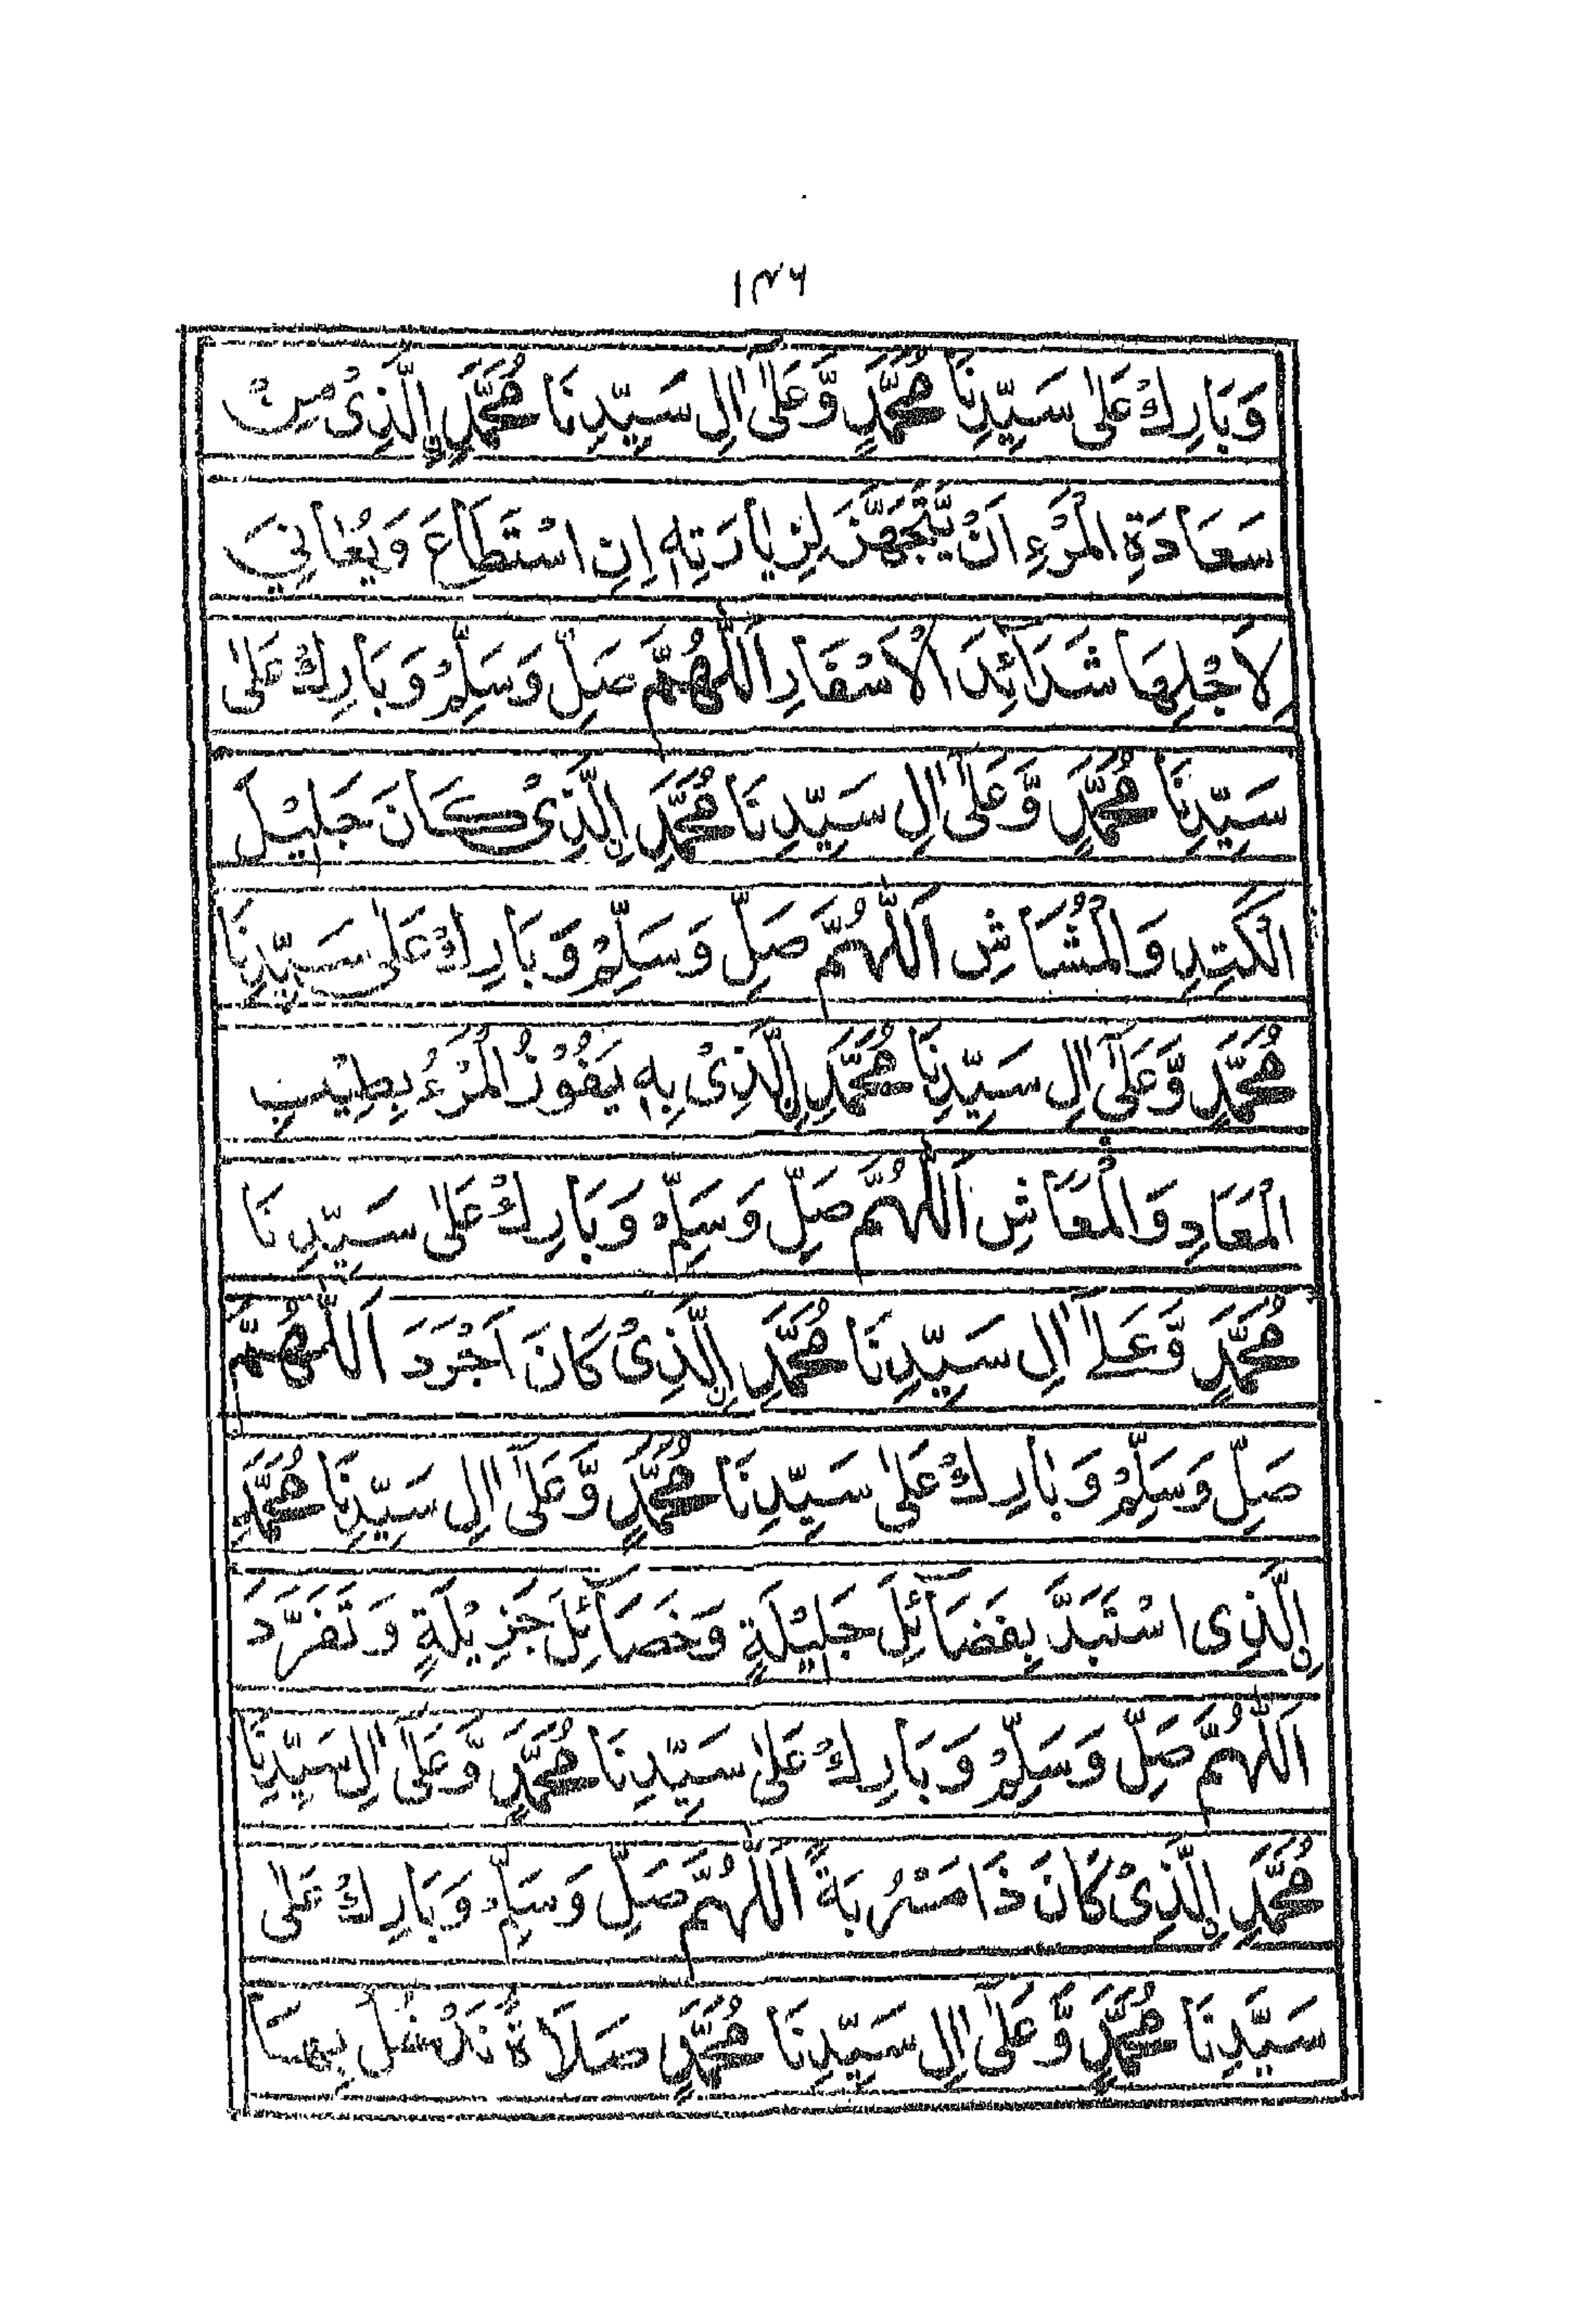 ۱۴۶
وَبَارِكْ عَلٰى سَيِّدِنَا مُحَمَّدٍ وَّعَلٰٓى اٰلِ سَيِّدِنَا مُحَمَّدِ اِلَّذِىْ مِنْ
سَعَادَةِ الْمَرْءِ اَنْ يَّتَجَهَّزَ لِزِيَارَتِهٖ اِنِ اسْتَطَاعَ وَيُعَانِيَ
لِاَجْلِهَا شَدَآئِدَ الْاَسْفَارِ اَللّٰهُمَّ صَلِّ وَسَلِّمْ وَبَارِكْ عَلٰى
سَيِّدِنَا مُحَمَّدٍ وَّعَلٰٓى اٰلِ سَيِّدِنَا مُحَمَّدِ اِلَّذِىْ كَانَ جَلِيْلَ
الْكَتِدِ وَالْمُشَاشِ اَللّٰهُمَّ صَلِّ وَسَلِّمْ وَبَارِكْ عَلٰى سَيِّدِنَا
مُحَمَّدٍ وَّعَلٰٓى اٰلِ سَيِّدِنَا مُحَمَّدِ اِلَّذِىْ بِهٖ يَفُوْزُ الْمَرْءُ بِطِيْبِ
الْمَعَادِ وَالْمَعَاشِ اَللّٰهُمَّ صَلِّ وَسَلِّمْ وَبَارِكْ عَلٰى سَيِّدِنَا
مُحَمَّدٍ وَّعَلٰٓى اٰلِ سَيِّدِنَا مُحَمَّدِ اِلَّذِىْ كَانَ اَجْرَدَ اَللّٰهُمَّ
صَلِّ وَسَلِّمْ وَبَارِكْ عَلٰى سَيِّدِنَا مُحَمَّدٍ وَّعَلٰٓى اٰلِ سَيِّدِنَا مُحَمَّدِ
اِلَّذِى اسْتَبَدَّ بِفَضَآئِلَ جَلِيْلَةٍ وَخَصَآئِلَ جَزِيْلَةٍ وَتَفَرَّدَ
اَللّٰهُمَّ صَلِّ وَسَلِّمْ وَبَارِكْ عَلٰى سَيِّدِنَا مُحَمَّدٍ وَّعَلٰٓى اٰلِ سَيِّدِنَا
مُحَمَّدِ اِلَّذِىْ كَانَ ذَا مَسْرُبَةٍ اَللّٰهُمَّ صَلِّ وَسَلِّمْ وَبَارِكْ عَلٰى
سَيِّدِنَا مُحَمَّدٍ وَّعَلٰٓى اٰلِ سَيِّدِنَا مُحَمَّدٍ صَلَاةً نَدْخُلُ بِهَا